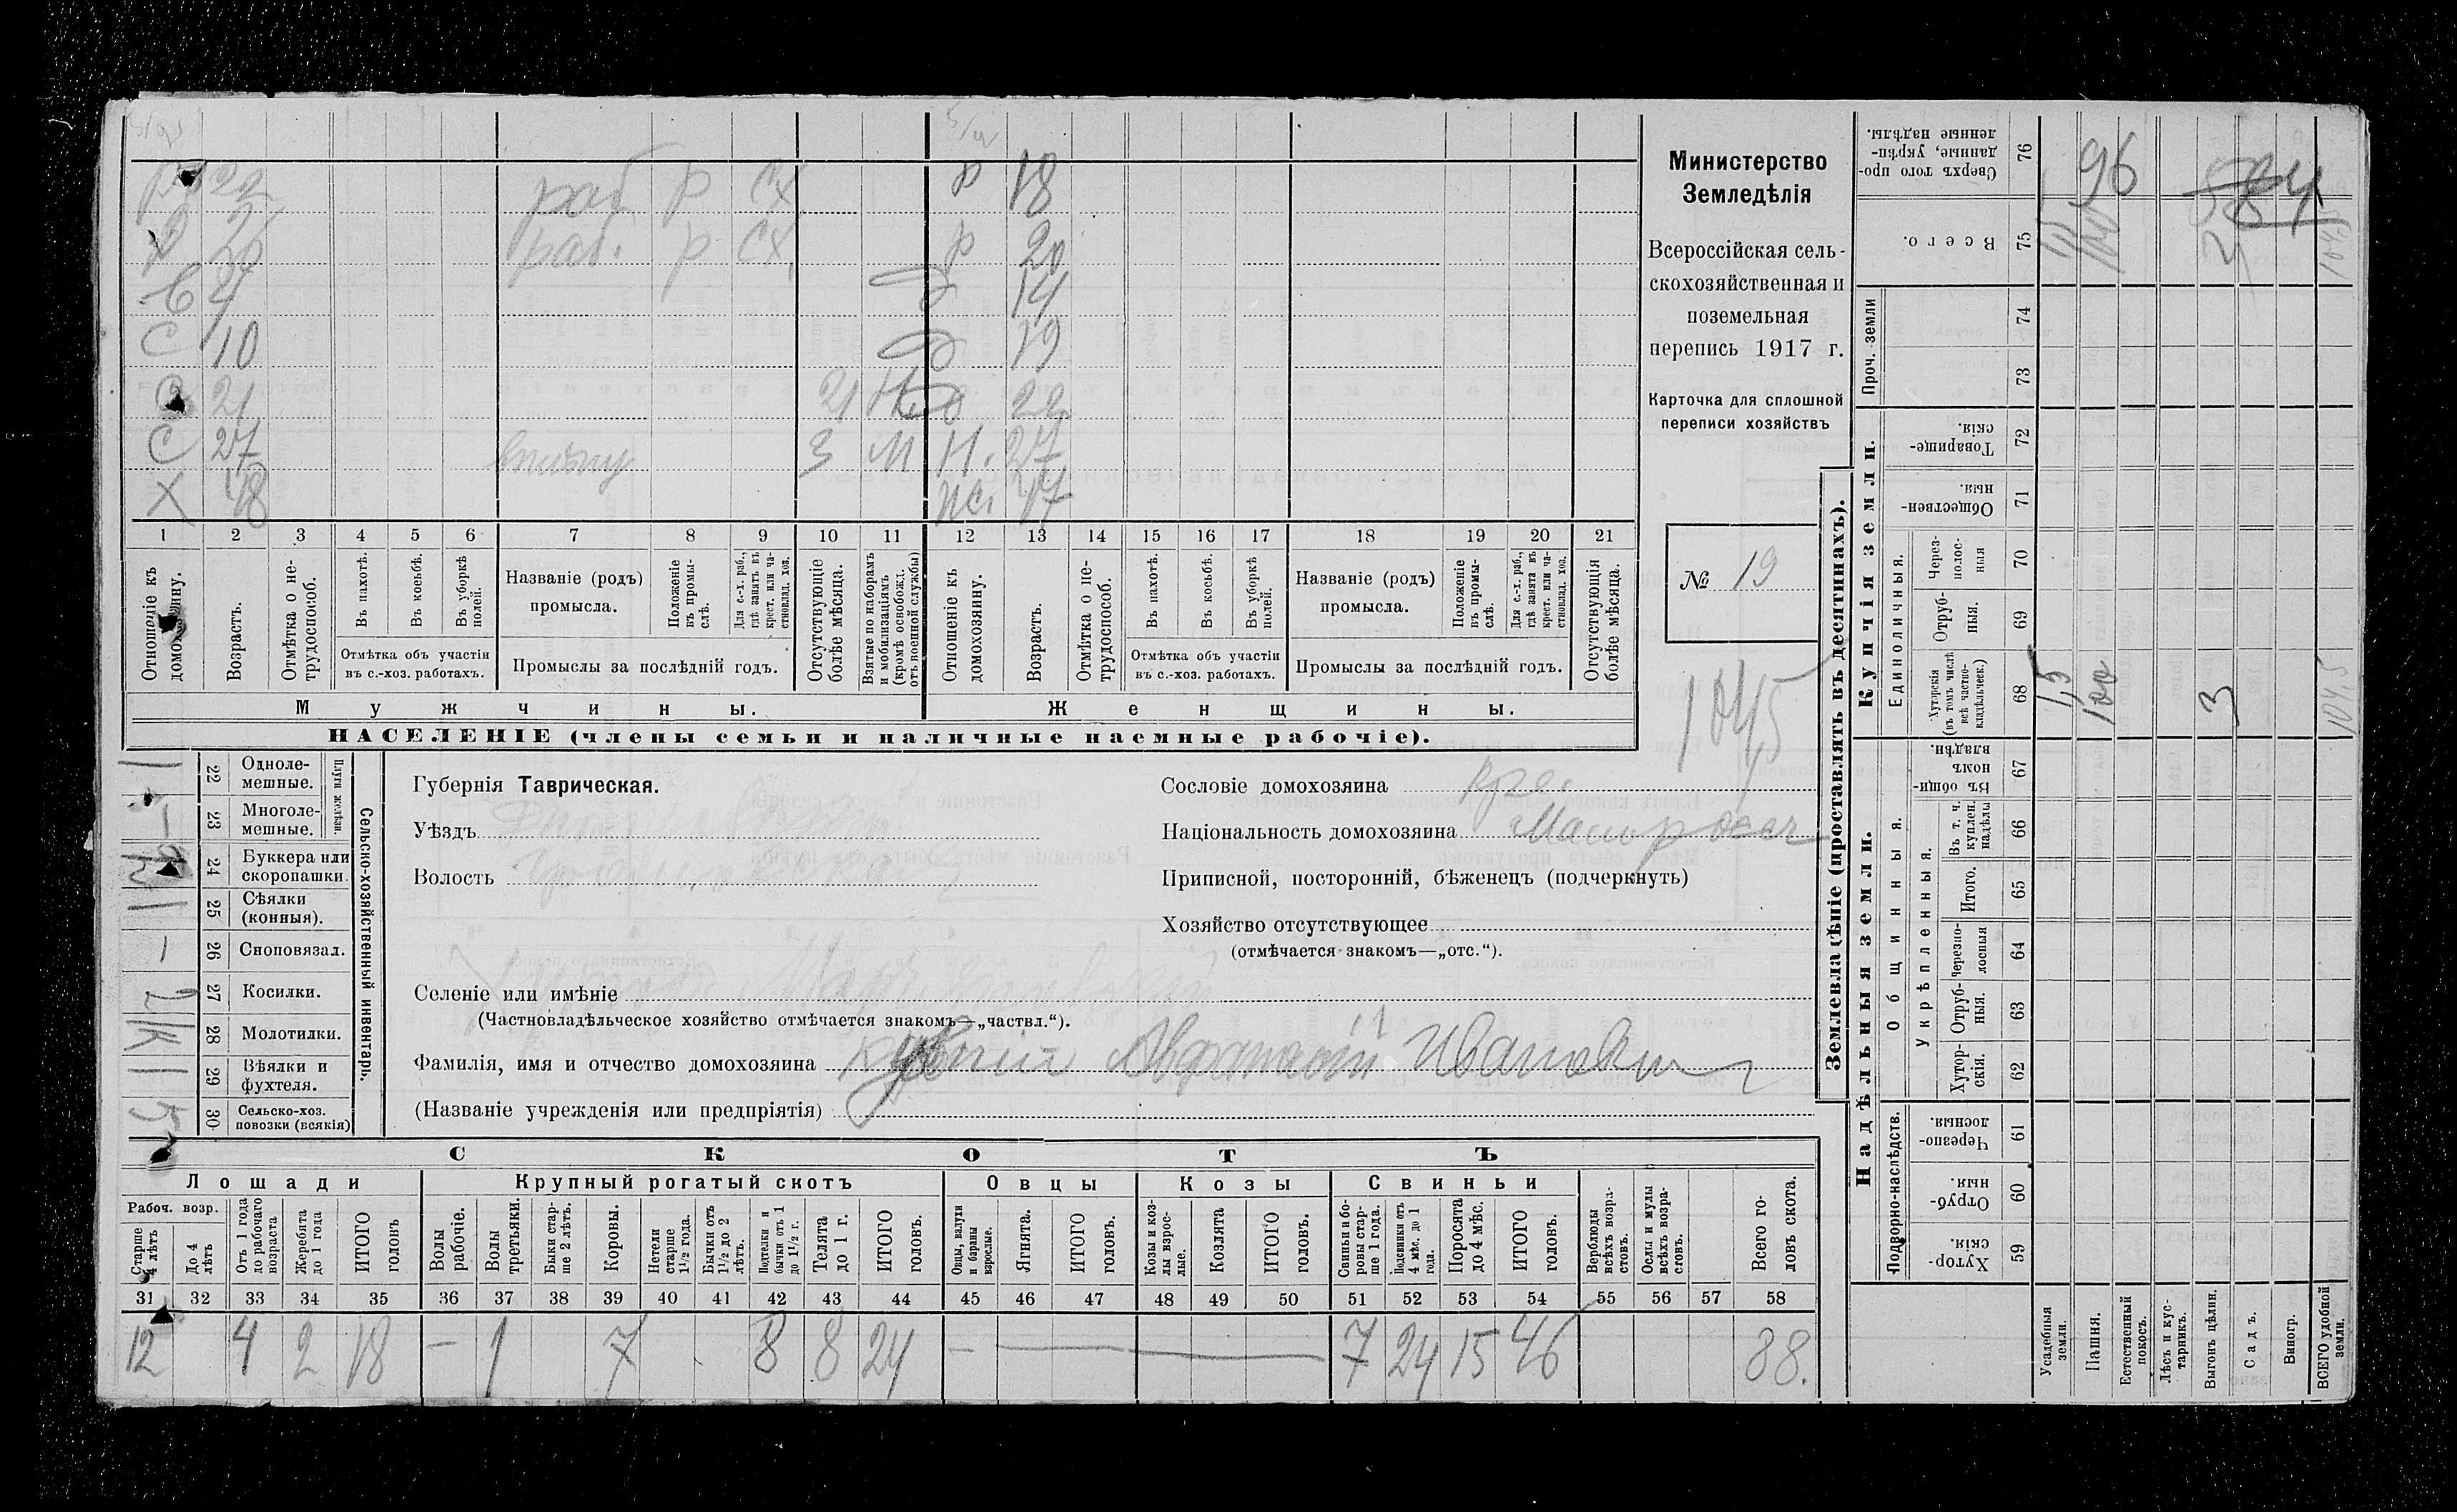 р 18
раб р сх
р 20
раб. р сх.
14
С 10 19
21 21 22
С 27 3 М Н. 27
Х 18 17
1 2 3 4 5 6 7 8 9 10 11 12 13 14 15 16 17 18 19 20 21
Отношеніе къ домохозяину.
Возрастъ.
Отмѣтка о не-трудоспособ.
Въ пахотѣ.
Въ косьбѣ.
Въ уборкѣ полей.
Отмѣтка объ участіи въ с.-хоз. работахъ.
Названіе (родъ) промысла.
Положеніе въ промы-слѣ.
Для с.-х. раб., гдѣ занятъ въ крест. или ча-стновлад. хоз.
Промыслы за послѣдній годъ.
Отсутствующіе болѣе мѣсяца.
Взятые по наборамъ и мобилизаціямъ (кромѣ освобожд. отъ военной службы)
Отношеніе къ домохозяину.
Возрастъ.
Отмѣтка о не-трудоспособ.
Въ пахотѣ.
Въ косьбѣ.
Въ уборкѣ полей.
Отмѣтка объ участіи въ с.-хоз. работахъ.
Названіе (родъ) промысла.
Положеніе въ промы-слѣ.
Для с.-х. раб., гдѣ занята въ крест. или ча-стновлад. хоз.
Промыслы за послѣдній годъ.
Отсутствующія болѣе мѣсяца.
Мужчины. Женщины.
НАСЕЛЕНІЕ (члены семьи и наличные наемные рабочіе).
Министерство
Земледѣлія
Всероссійская сель-
скохозяйственная и
поземельная
перепись 1917 г.
Карточка для сплошной
переписи хозяйствъ
№ 19
104,5
Сельско-хозяйственный инвентарь.
Плуги желѣзн.
22 Одноле-мешные. 1
23 Многоле-мешные. –
24 Буккера или скоропашки.
25 Сѣялки (конныя). 1
26 Сноповязал. –
27 Косилки. 2
28 Молотилки. 1К
29 Вѣялки и фухтеля. 1
30 Сельско-хоз. повозки (всякія) 5
Губернія Таврическая.
Уѣздъ
Волость
Сословіе домохозяина кре.
Національность домохозяина Малоросс
Приписной, посторонній, бѣженецъ (подчеркнуть)
Хозяйство отсутствующее
(отмѣчается знакомъ—„отс.“).
Селеніе или имѣніе
(Частновладѣльческое хозяйство отмѣчается знакомъ—„частвл.“).
Фамилія, имя и отчество домохозяина Ивановичъ
(Названіе учрежденія или предпріятія)
СКОТЪ
Лошади Крупный рогатый скотъ Овцы Козы Свиньи
Рабоч. возр.
Старше 4 лѣтъ
До 4 лѣтъ
Отъ 1 года до рабочаго возраста
Жеребята до 1 года
ИТОГО головъ
Волы рабочіе.
Волы третьяки.
Быки стар-ше 2 лѣтъ.
Коровы.
Нетели старше 1½ года.
Бычки отъ 1½ до 2 лѣтъ.
Подтелки и бычки отъ 1 до 1½ г.
Телята до 1 г.
ИТОГО головъ.
Овцы, валухи и бараны взрослые.
Ягнята.
ИТОГО головъ.
Козы и коз-лы взрос-лые.
Козлята
ИТОГО головъ.
Свиньи и бо-ровы стар-ше 1 года.
Подсвинки отъ 4 мѣс. до 1 года.
Поросята до 4 мѣс.
ИТОГО головъ.
Верблюды всѣхъ возра-стовъ.
Ослы и мулы всѣхъ возра-стовъ.
Всего го-ловъ скота.
31 32 33 34 35 36 37 38 39 40 41 42 43 44 45 46 47 48 49 50 51 52 53 54 55 56 57 58
12 4 2 18 – 1 7 8 8 24 – 7 24 15 46 88.
Землевладѣніе (проставлять въ десятинахъ).
Купчія земли.
Надѣльныя земли.
Сверхъ того про-данные, укрѣп-ленные надѣлы. 76 96
Всего. 75 1,5 100 3 104,5
Проч. земли 74 73
Товарище-скія. 72
Обществен-ныя. 71
Единоличныя.
Через-полос-ныя 70
Отруб-ныя. 69
Хуторскія (въ томъ числѣ всѣ частно-владѣльческ.) 68 1,5 100 3 104,5
Въ общи-номъ владѣн. 67
Общинныя.
Укрѣпленныя.
Въ т. ч. куплен. надѣлы 66
Итого. 65
Черезпо-лосныя 64
Отруб-ныя. 63
Хутор-скія. 62
Подворно-наслѣдств.
Черезпо-лосныя. 61
Отруб-ныя. 60
Хутор-скія. 59
Усадебныя земли.
Пашня.
Естественный покосъ.
Лѣсъ и кус-тарникъ.
Выгонъ цѣлин.
Садъ.
Виногр.
ВСЕГО удобной земли.